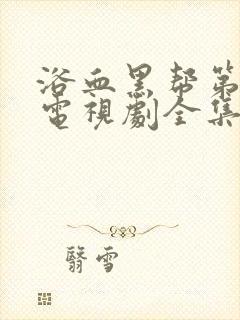 浴血黑帮第
電視劇全集
翳雪